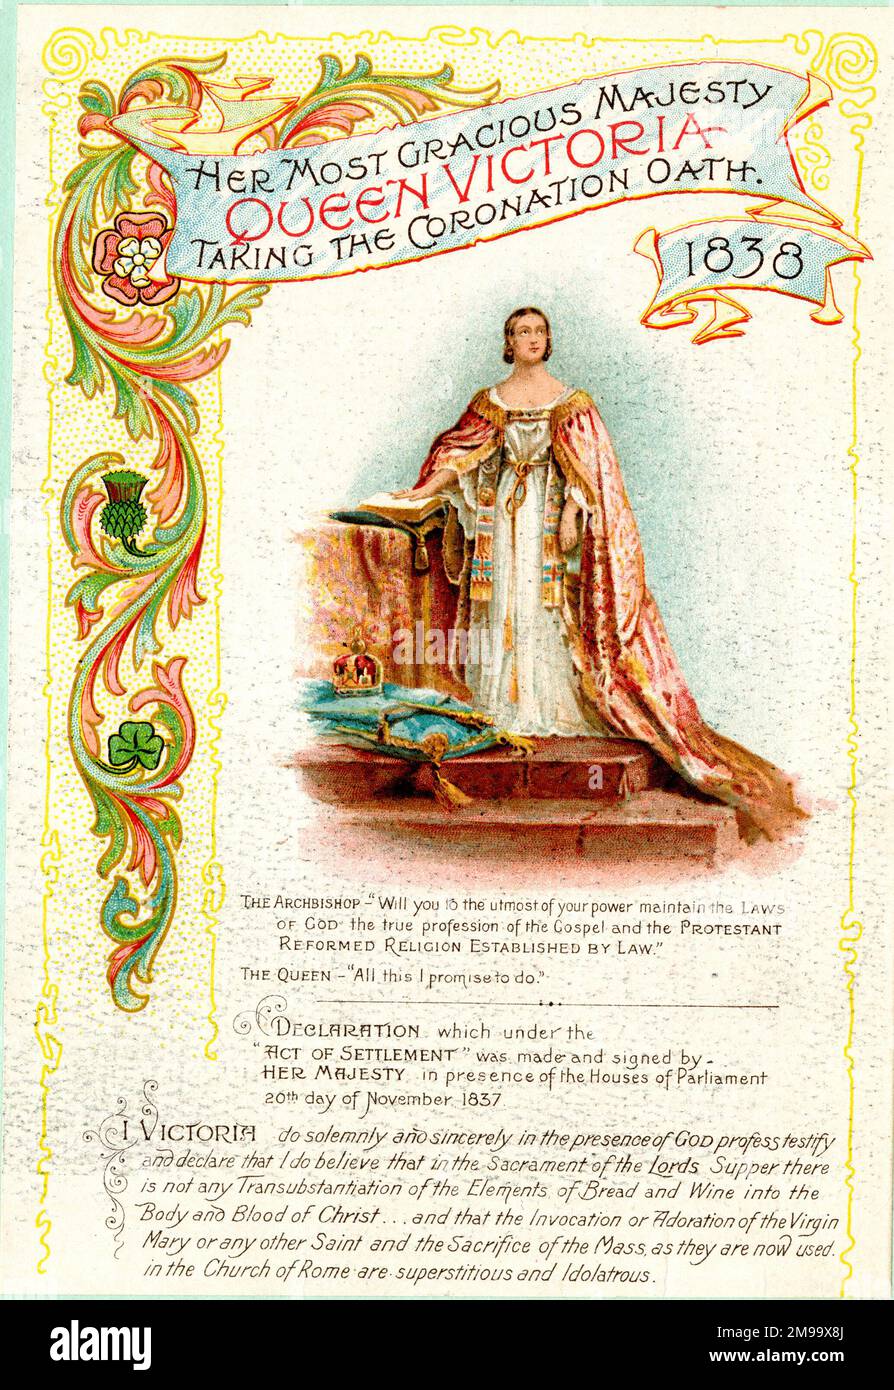 HER MOST GRACIOUS MAJESTY
QUEEN VICTORIA
TAKING THE CORONATION OATH.
1838
alamy
a
THE ARCHBISHOP-"Will you to the utmost of your power maintain the LAWS
OF GOD the true profession of the Gospel and the PROTESTANT
REFORMED RELIGION ESTABLISHED BY LAW."
THE QUEEN-"All this I promise to do."
DECLARATION which under the
"ACT OF SETTLEMENT" was made and signed by
HER MAJESTY in presence of the Houses of Parliament
20th day of November 1837.
I VICTORIA do solemnly and sincerely in the presence of GOD profess testify
and declare that I do believe that in the Sacrament of the Lords Supper there
is not any Transubstantiation of the Elements of Bread and Wine into the
Body and Blood of Christ... and that the Invocation or Adoration of the Virgin
Mary or any other Saint and the Sacrifice of the Mass, as they are now used
in the Church of Rome are superstitious and Idolatrous.
alamy
Image ID: 2M99X8J
www.alamy.com